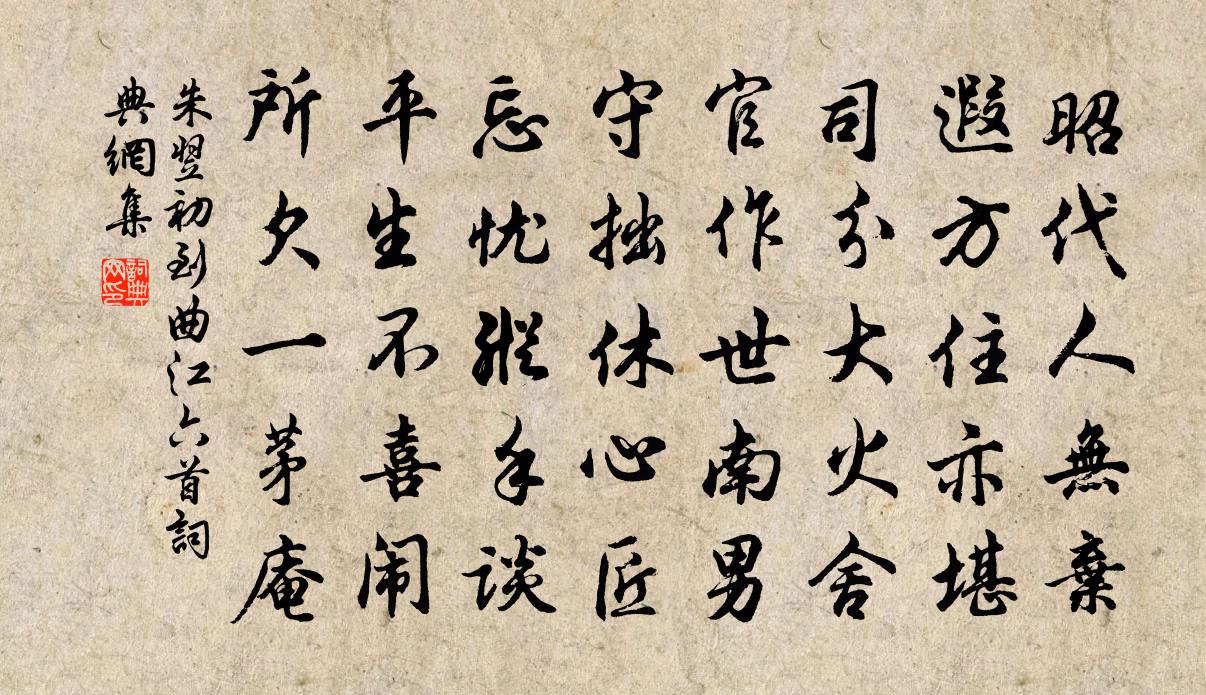 昭代人無棄
遐方住亦堪
司分大火舍
官作世南男
守拙休心匠
忘忧縱手談
平生不喜闹
所欠一茅庵
朱翌初到曲江六首詞
典網集
詞典
网印